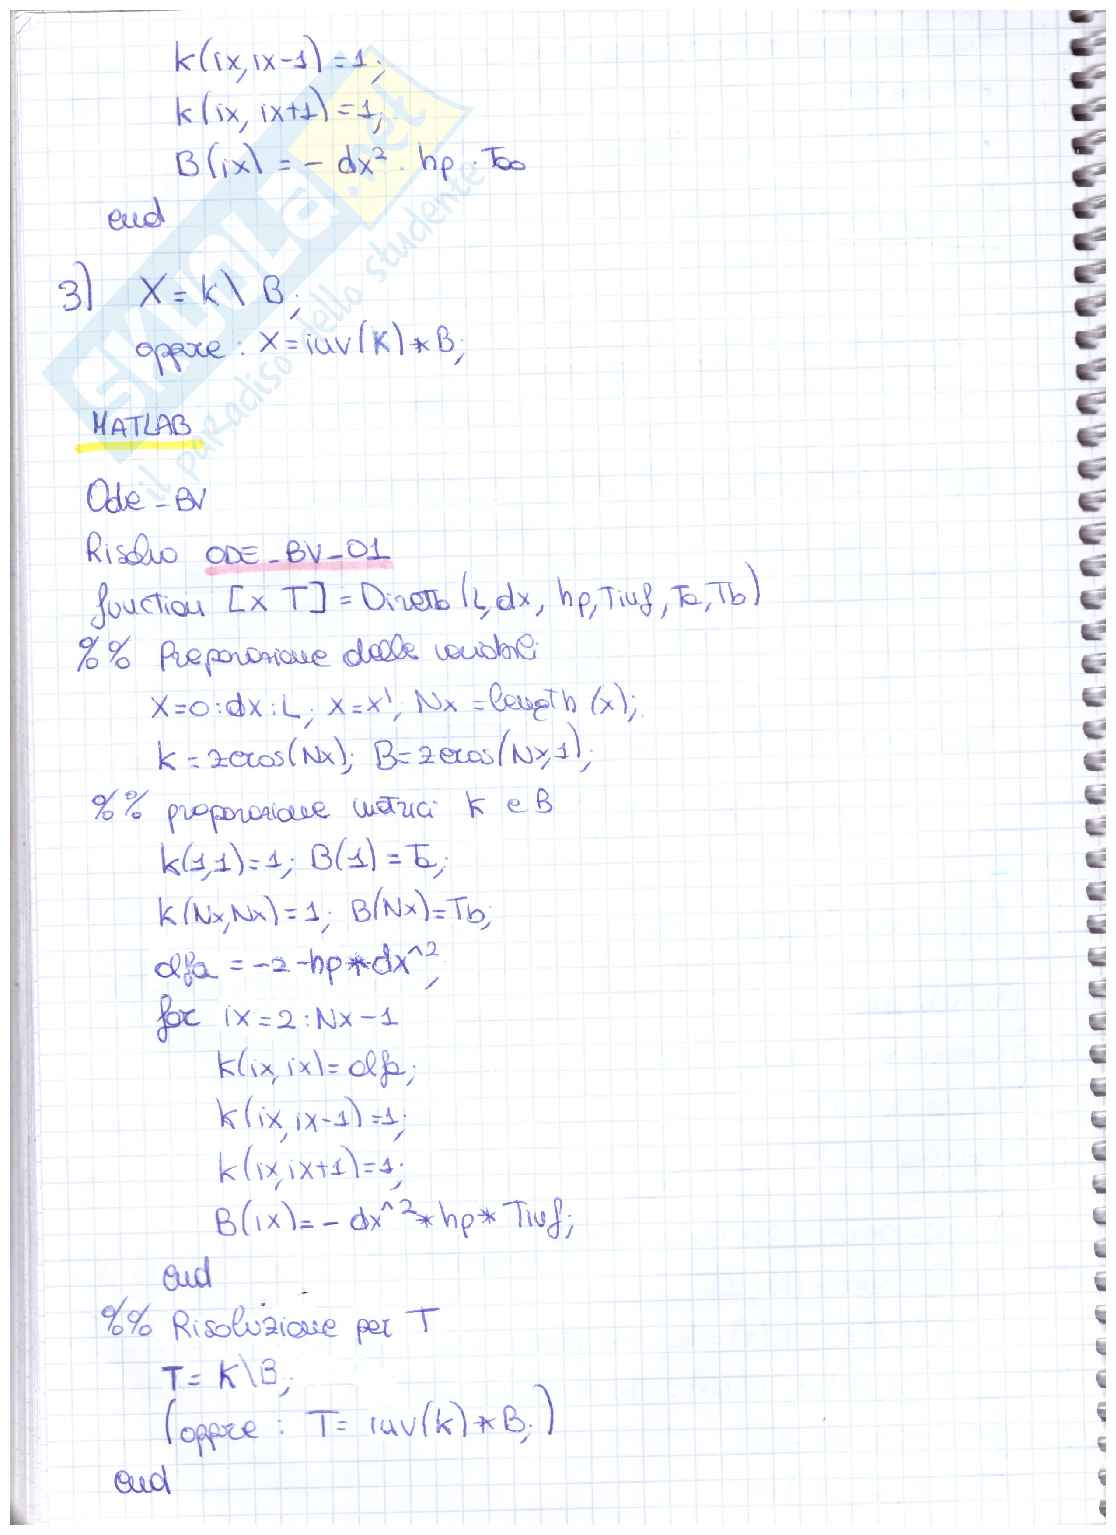 k(ix, ix-1) = 1;
k(ix, ix+1) = 1;
B(ix) = - dx² · hp · T∞
end
3) X = k \ B;
oppure : X = inv(K) * B;
MATLAB
Ode_BV
Risolvo ODE_BV_01
function [x T] = Diretto (L, dx, hp, Tinf, Ta, Tb)
%% Preparazione delle variabili
X=0:dx:L; x=x'; Nx = length (x);
k = zeros(Nx); B= zeros(Nx,1);
%% preparazione matrici k e B
k(1,1)=1; B(1) = Ta;
k(Nx,Nx) = 1; B(Nx)=Tb;
alfa = -2-hp*dx^2;
for ix=2:Nx-1
k(ix,ix)= alfa;
k(ix,ix-1)=1;
k(ix,ix+1)=1;
B(ix)= - dx^2*hp* Tinf;
end
%% Risoluzione per T
T= K\B;
(oppure : T= inv(k)*B;)
end
SKUOLA.net
il paradiso dello studente